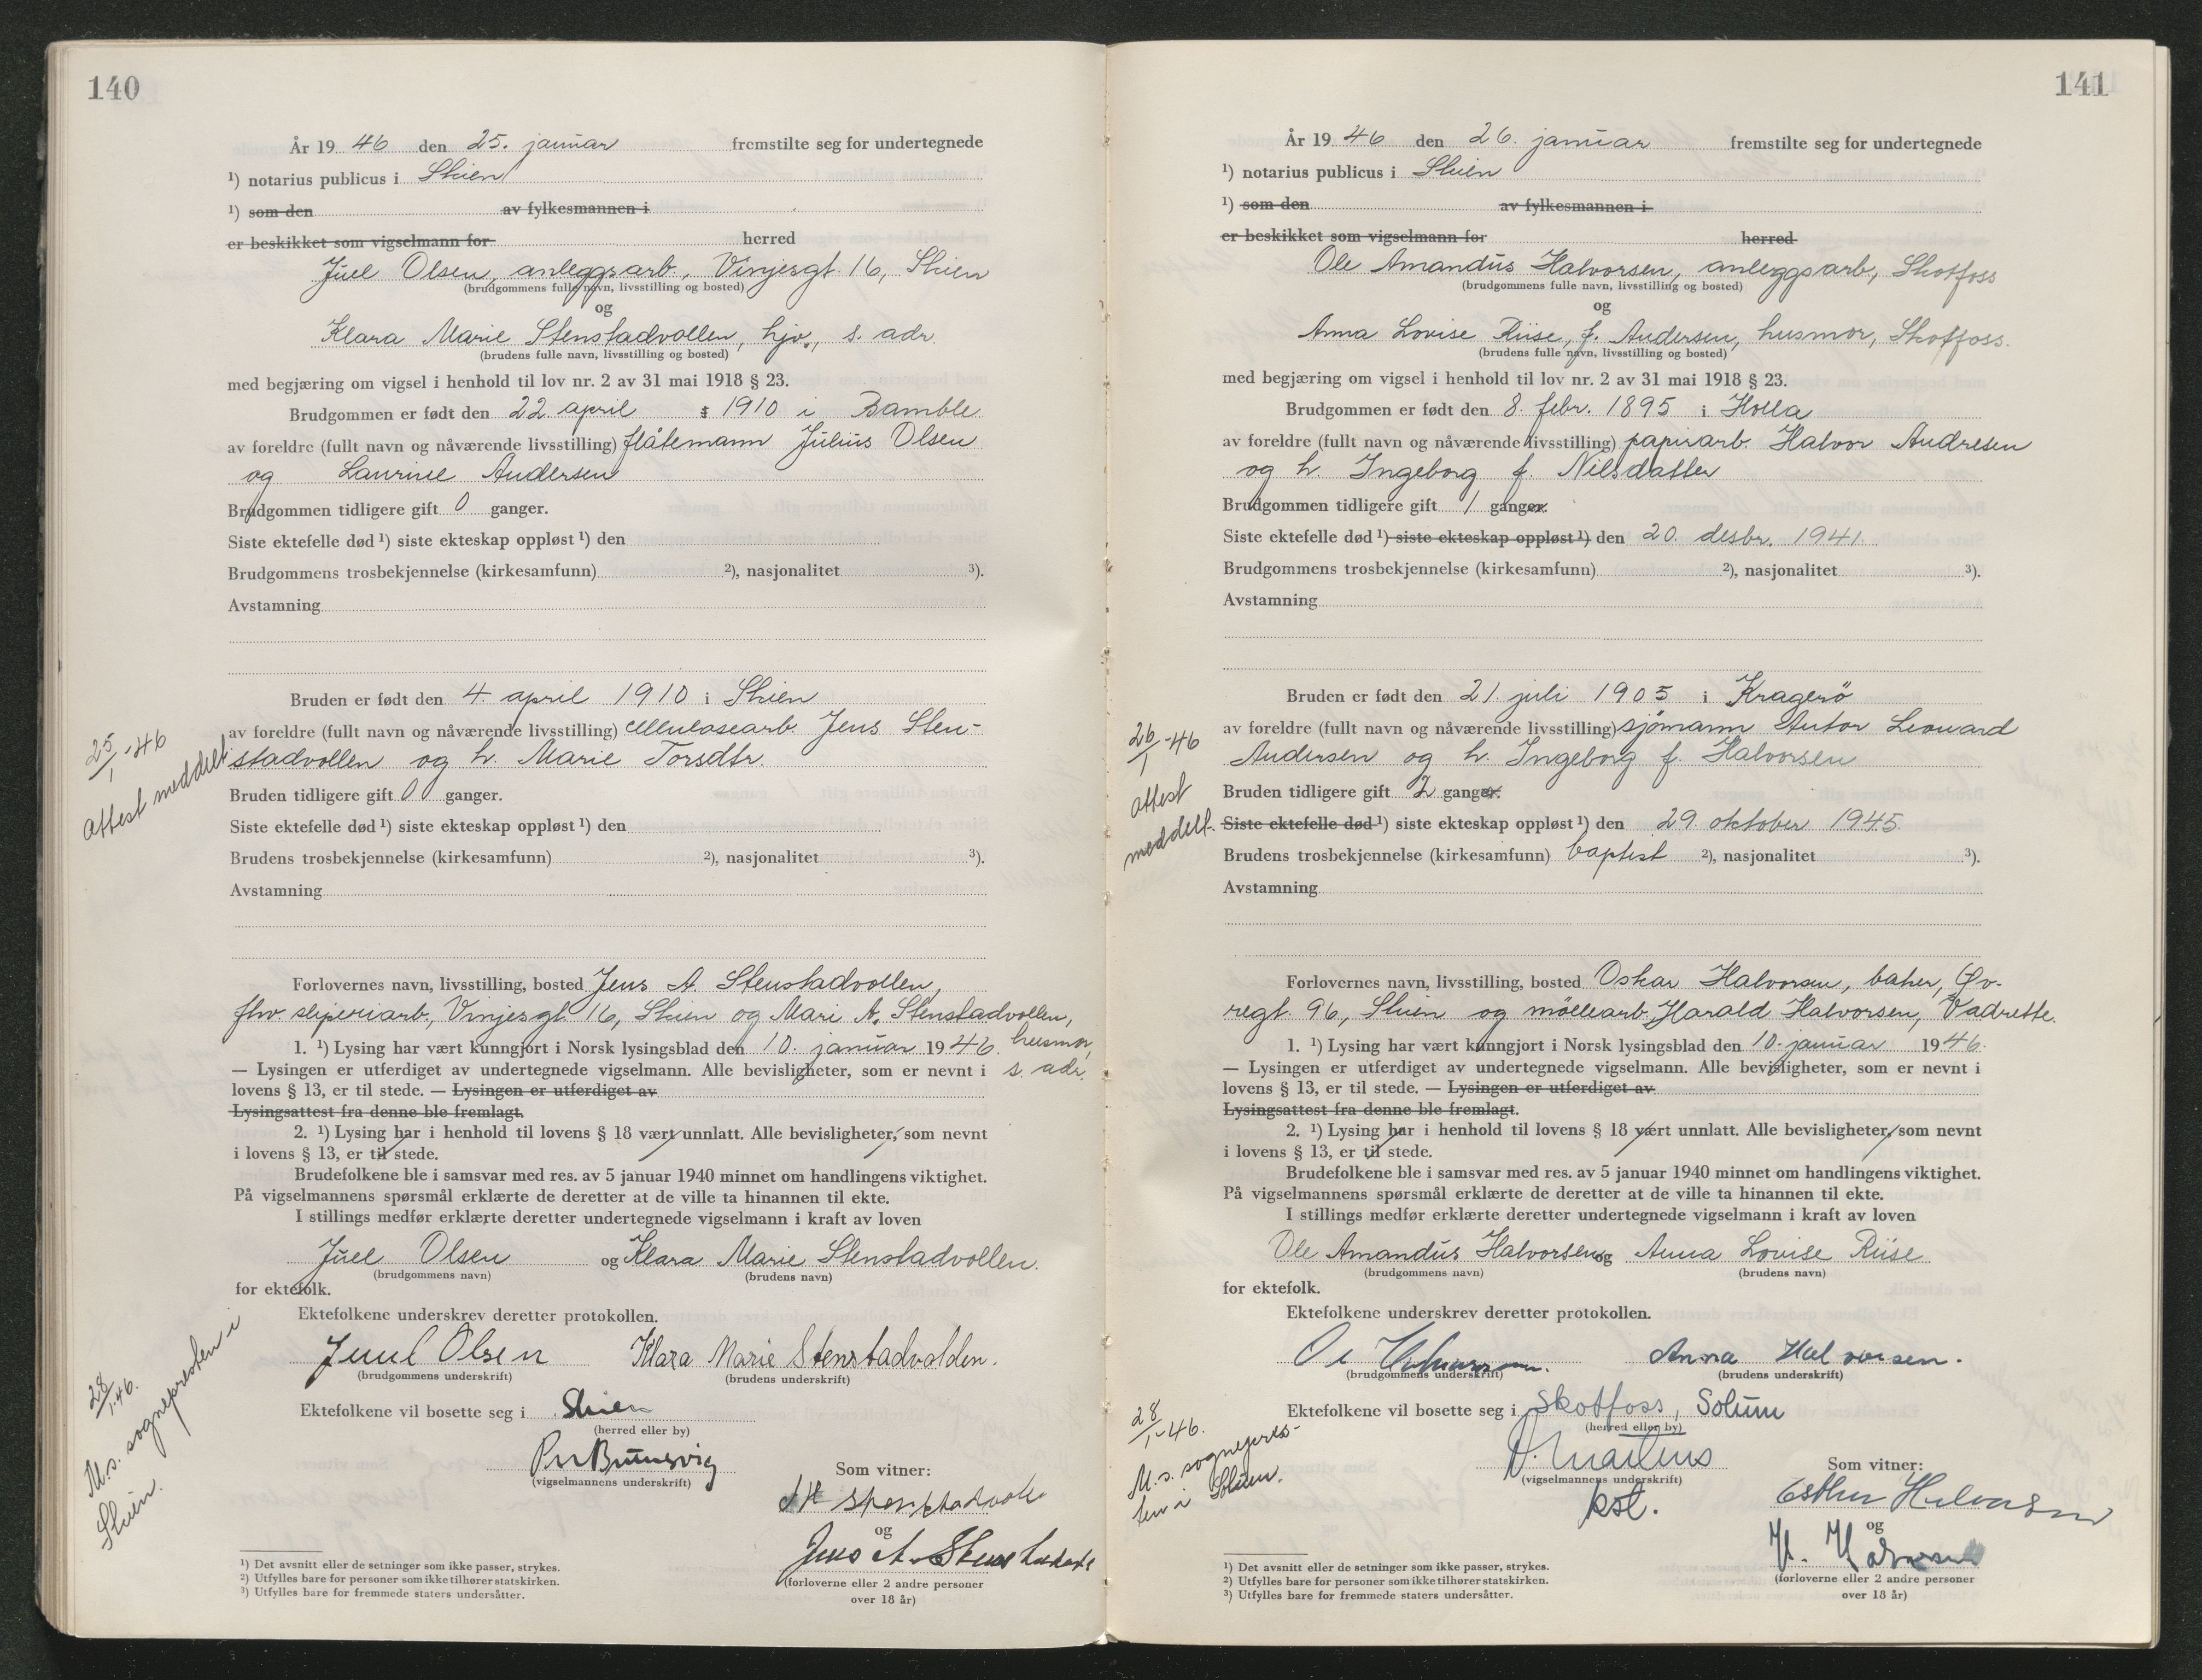 140
År 19 46 den 25. januar fremstilte seg for undertegnede
¹) notarius publicus i Skien
¹) som den av fylkesmannen i
er beskikket som vigselmann for herred
Juel Olsen, anleggsarb., Vinjesgt. 16, Skien
(brudgommens fulle navn, livsstilling og bosted)
og
Klara Marie Stenstadvollen, hjv., s. adr.
(brudens fulle navn, livsstilling og bosted)
med begjæring om vigsel i henhold til lov nr. 2 av 31 mai 1918 § 23.
Brudgommen er født den 22. april 1910 i Bamble
av foreldre (fullt navn og nåværende livsstilling) flåtemann Julius Olsen
og Laurine Andersen
Brudgommen tidligere gift 0 ganger.
Siste ektefelle død ¹) siste ekteskap oppløst ¹) den
Brudgommens trosbekjennelse (kirkesamfunn) ²), nasjonalitet ³).
Avstamning
Bruden er født den 4. april 1910 i Skien
av foreldre (fullt navn og nåværende livsstilling) cellulosearb. Jens Sten-
stadvollen og h. Marie Torsdtr.
Bruden tidligere gift 0 ganger.
Siste ektefelle død ¹) siste ekteskap oppløst ¹) den
Brudens trosbekjennelse (kirkesamfunn) ²), nasjonalitet ³).
Avstamning
25/1-46
attest meddelt
Forlovernes navn, livsstilling, bosted Jens A. Stenstadvollen,
fhv. sliperiarb., Vinjesgt. 16, Skien og Mari A. Stenstadvollen,
husmor,
s. adr.
1. ¹) Lysing har vært kunngjort i Norsk lysingsblad den 10. januar 1946.
— Lysingen er utferdiget av undertegnede vigselmann. Alle bevisligheter, som er nevnt i
lovens § 13, er til stede. — Lysingen er utferdiget av
Lysingsattest fra denne ble fremlagt.
2. ¹) Lysing har i henhold til lovens § 18 vært unnlatt. Alle bevisligheter, som nevnt
i lovens § 13, er til stede.
Brudefolkene ble i samsvar med res. av 5 januar 1940 minnet om handlingens viktighet.
På vigselmannens spørsmål erklærte de deretter at de ville ta hinannen til ekte.
I stillings medfør erklærte deretter undertegnede vigselmann i kraft av loven
Juel Olsen og Klara Marie Stenstadvollen.
(brudgommens navn) (brudens navn)
for ektefolk.
Ektefolkene underskrev deretter protokollen.
Juul Olsen Klara Marie Stenstadvolden.
(brudgommens underskrift) (brudens underskrift)
Ektefolkene vil bosette seg i Skien
(herred eller by)
(vigselmannens underskrift)
Som vitner:
og
Jens A. Stenstadvolle
(forloverne eller 2 andre personer
over 18 år)
28/1-46.
M.s. sognepresten i
Skien.
¹) Det avsnitt eller de setninger som ikke passer, strykes.
²) Utfylles bare for personer som ikke tilhører statskirken.
³) Utfylles bare for fremmede staters undersåtter.
141
År 19 46 den 26. januar fremstilte seg for undertegnede
¹) notarius publicus i Skien
¹) som den av fylkesmannen i
er beskikket som vigselmann for herred
Ole Amandus Halvorsen, anleggsarb, Skotfoss
(brudgommens fulle navn, livsstilling og bosted)
og
Anna Lovise Riise, f. Andersen, husmor, Skotfoss.
(brudens fulle navn, livsstilling og bosted)
med begjæring om vigsel i henhold til lov nr. 2 av 31 mai 1918 § 23.
Brudgommen er født den 8. febr. 1895 i Holla
av foreldre (fullt navn og nåværende livsstilling) papirarb. Halvor Andresen
og h. Ingeborg f. Nilsdatter
Brudgommen tidligere gift 1 ganger.
Siste ektefelle død ¹) siste ekteskap oppløst ¹) den 20. desbr. 1941.
Brudgommens trosbekjennelse (kirkesamfunn) ²), nasjonalitet ³).
Avstamning
Bruden er født den 21. juli 1905 i Kragerö
av foreldre (fullt navn og nåværende livsstilling) sjömann Antor Leonard
Andersen og h. Ingeborg f. Halvorsen
Bruden tidligere gift 2 ganger.
Siste ektefelle død ¹) siste ekteskap oppløst ¹) den 29. oktober 1945.
Brudens trosbekjennelse (kirkesamfunn) baptist ²), nasjonalitet ³).
Avstamning
26/1-46
attest
meddelt.
Forlovernes navn, livsstilling, bosted Oskar Halvorsen, baker, Øv-
regt. 96, Skien og möllearb. Harald Halvorsen, Vadrette.
1. ¹) Lysing har vært kunngjort i Norsk lysingsblad den 10. januar 1946.
— Lysingen er utferdiget av undertegnede vigselmann. Alle bevisligheter, som er nevnt i
lovens § 13, er til stede. — Lysingen er utferdiget av
Lysingsattest fra denne ble fremlagt.
2. ¹) Lysing har i henhold til lovens § 18 vært unnlatt. Alle bevisligheter, som nevnt
i lovens § 13, er til stede.
Brudefolkene ble i samsvar med res. av 5 januar 1940 minnet om handlingens viktighet.
På vigselmannens spørsmål erklærte de deretter at de ville ta hinannen til ekte.
I stillings medfør erklærte deretter undertegnede vigselmann i kraft av loven
Ole Amandus Halvorsen og Anna Lovise Riise
(brudgommens navn) (brudens navn)
for ektefolk.
Ektefolkene underskrev deretter protokollen.
Anna Halvorsen.
(brudgommens underskrift) (brudens underskrift)
Ektefolkene vil bosette seg i Skotfoss, Solum
(herred eller by)
(vigselmannens underskrift)
kst.
Som vitner:
Esther Halvorsen
og
H. Halvorsen
(forloverne eller 2 andre personer
over 18 år)
28/1-46.
M.s. sognepres-
ten i Solum.
¹) Det avsnitt eller de setninger som ikke passer, strykes.
²) Utfylles bare for personer som ikke tilhører statskirken.
³) Utfylles bare for fremmede staters undersåtter.